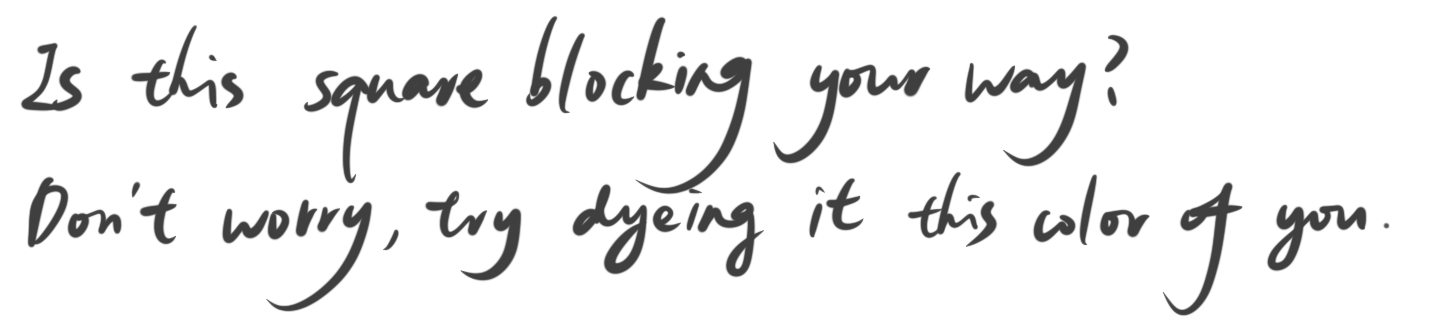 Is this square blocking your way?
Don't worry, try dyeing it this color of you.